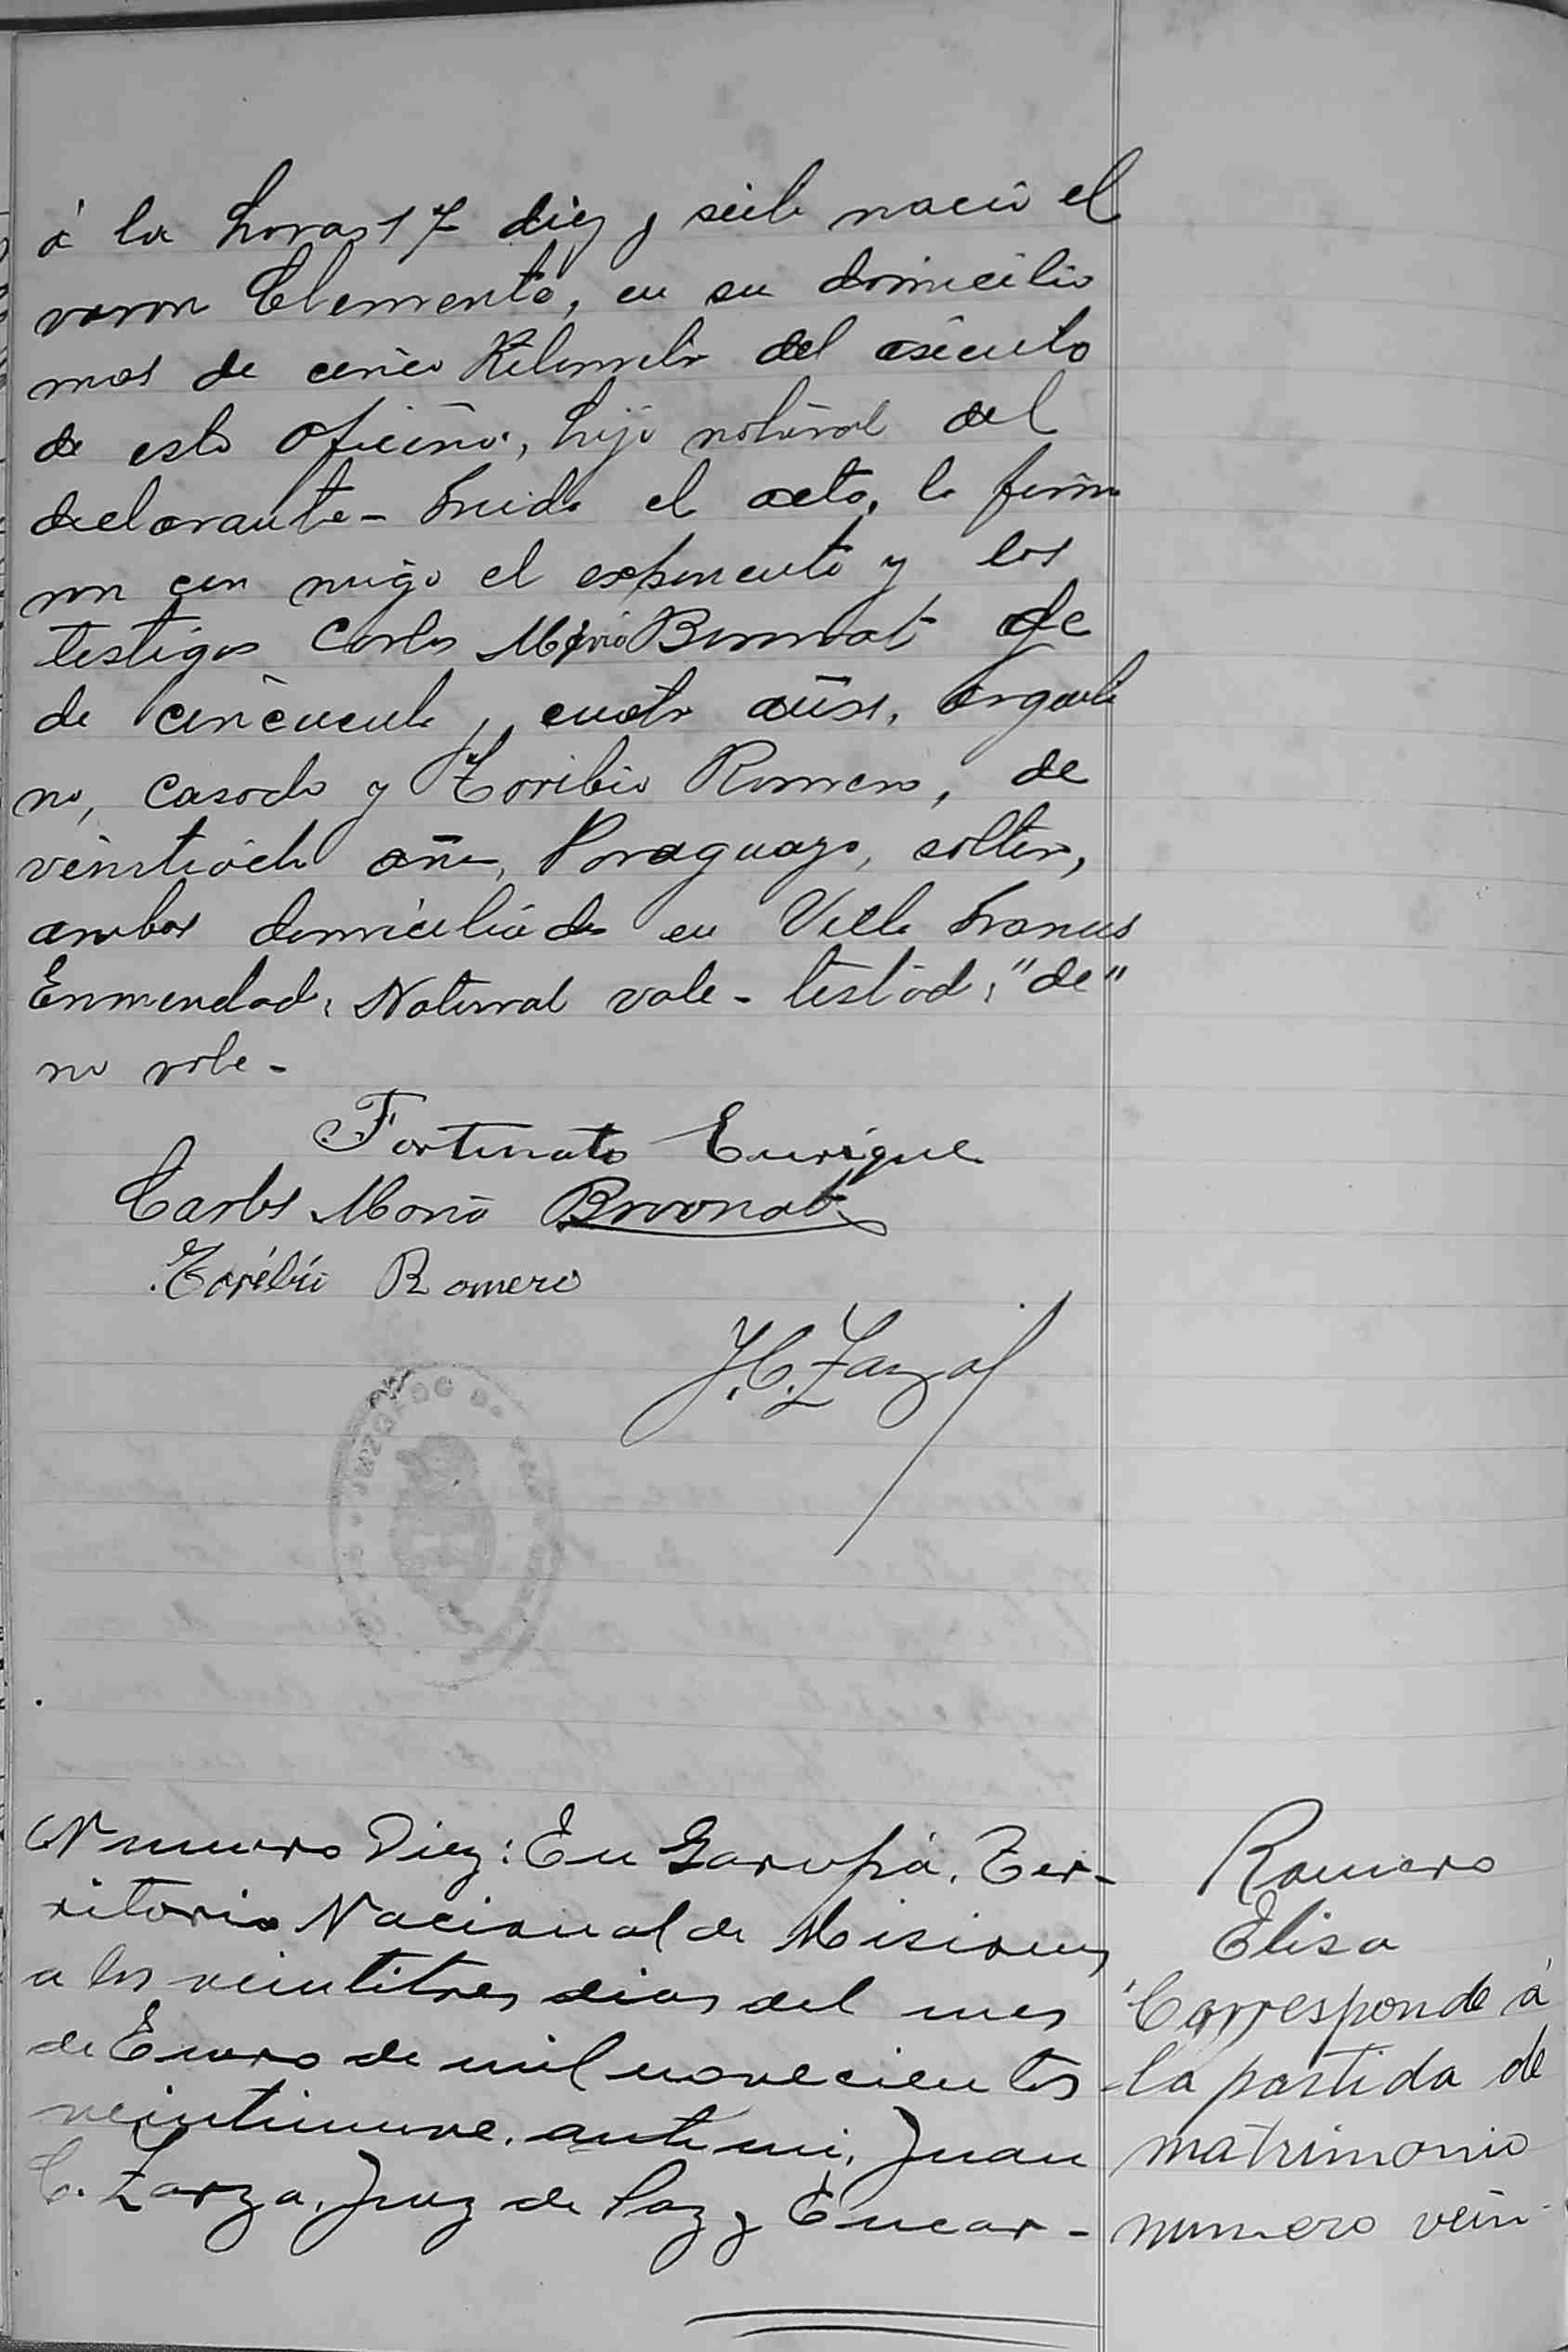 á la horas 17 diez y siete nació el
varon Clemente, en su domicilio
mas de cinco Kilometr del asiento
de esta Oficina, hijo natural del
declarante - Leida el acta, la firma
ron con migo el exponente y los
testigos Carlos María Bonnat de
de cincuenta y cuatro años, argenti
no, casado y Toribio Romero, de
veintiocho años, Paraguayo, soltero,
ambos domiciliados en Villa Lanus
Enmendado: Natural vale - testado: "de"
no vale -
Fortunato Enrique
Carlos Maria
Toribio Romero
J. C. Zarza
JUZGADO DE
Numero Diez: En Garupá, Ter-
ritorio Nacional de Misiones
a los veintitres dias del mes
de Enero de mil novecientos
veintinueve, ante mi, Juan
C. Zarza, Juez de Paz y Encar-
Romero
Elisa
Corresponde á
la partida de
matrimonio
numero vein